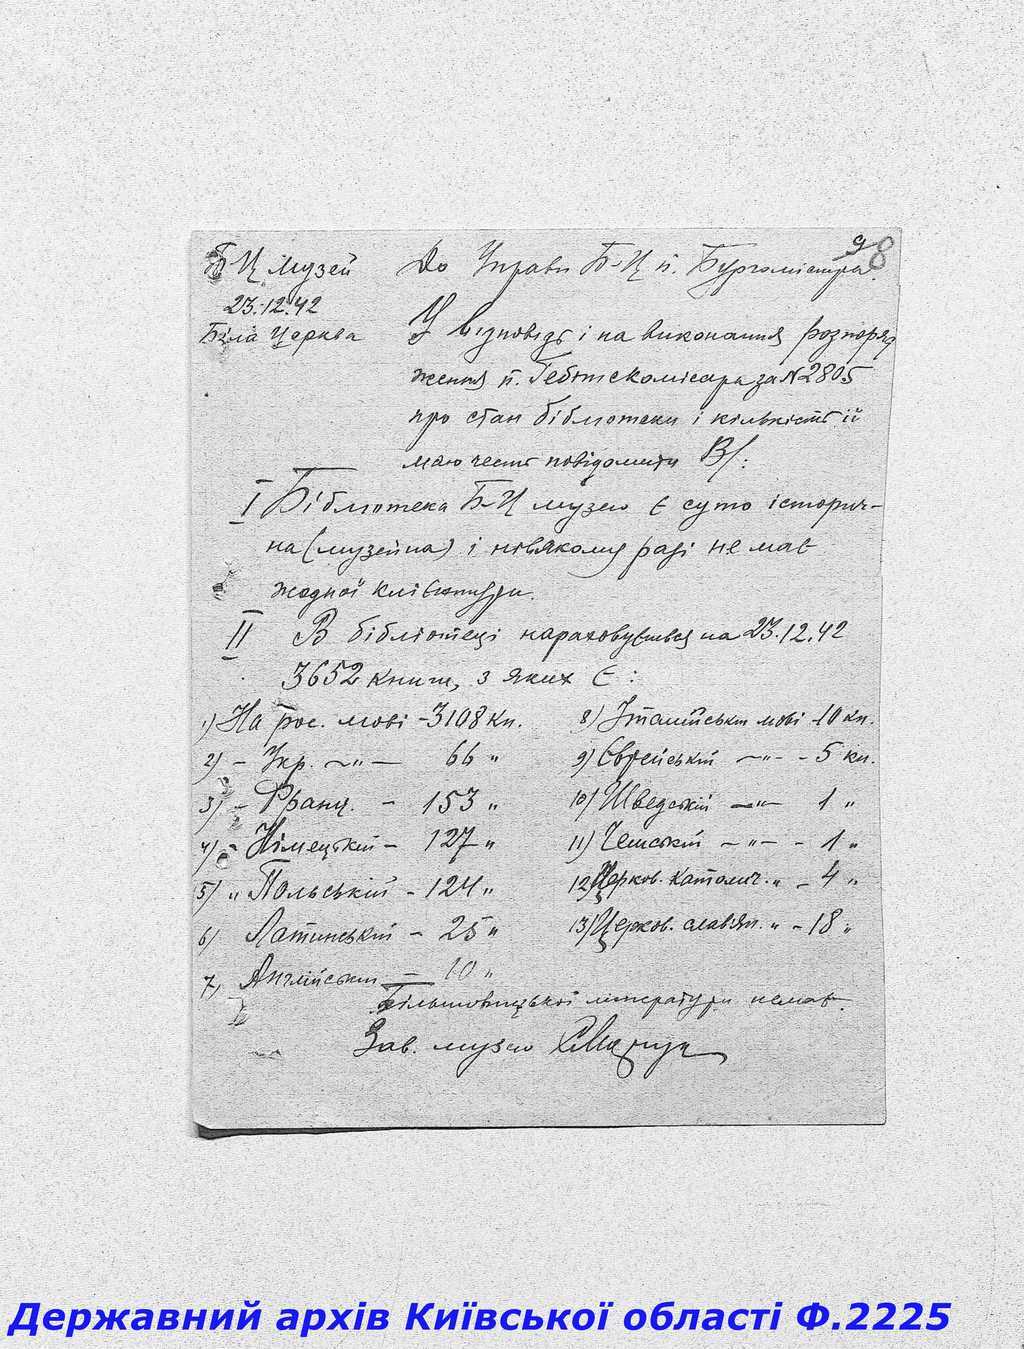 98
Б-Ц Музей
23.12.42
Біла Церква
До Управи Б-Ц п. Бургомістра.
У відповідь і на виконання розпоряд
ження п. Гебітскомісара за № 2805
про стан бібліотеки і кількість її
маю честь повідомити В/:
I Бібліотека Б-Ц музею є суто історич-
на (музейна) і ні в якому разі не має
жодної клієнтури.
II В бібліотеці нараховується на 23.12.42
3652 книги, з яких є:
1) На рос. мові - 3108 кн.
2) - Укр. —"— 66 "
3) - Франц. - 153 "
4) - Німецькій - 127 "
5) " Польській - 124 "
6) Латинській - 25 "
7) Англійській — 10 "
8) Італійській мові - 10 кн.
9) Єврейській —"— - 5 кн.
10) Шведській —"— 1 "
11) Чешській —"— - 1 "
12) Церков. католич. " - 4 "
13) Церков. славян. " - 18 "
Більшовицької літератури немає.
Зав. музею
Державний архів Київської області Ф.2225